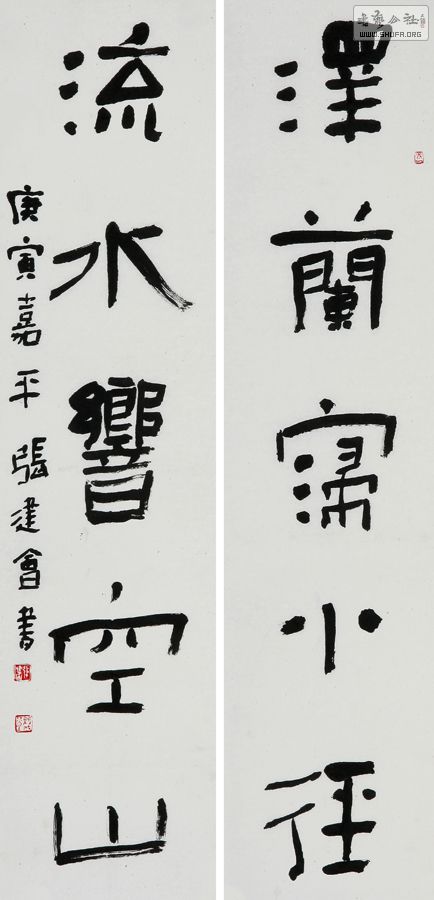 澤蘭寖小徑
流水響空山
庚寅嘉平張建會書
WWW.SHUFA.ORG